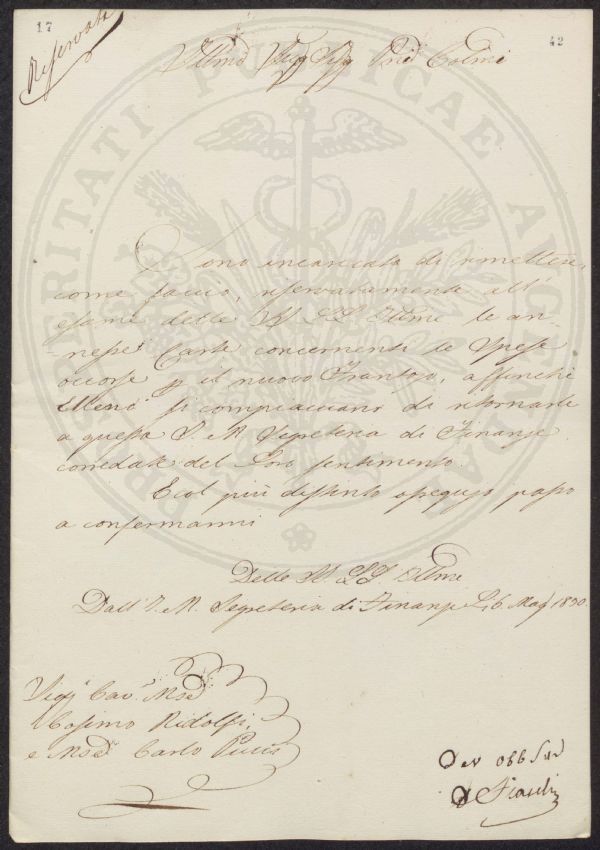 17
42
Riservata
Illmi Sigg Sigg Pni Colmi
Sono incaricato di rimettere,
come faccio, riservatamente all'
esame delle LL SS Illme le an-
nesse Carte concernenti le spese
occorse p il nuovo Frantojo, affinchè
Elleno si compiacciano di ritornarle
a questa I. e R. Segreteria di Finanze
corredate del Loro sentimento.
E col più distinto ossequio passo
a confermarmi
Delle LL SS Illme
Dall' I. e R. Segreteria di Finanze Li 6. Magg 1830.
Sigg Cav. March
Cosimo Ridolfi,
e March Carlo Pucci
Dev obb Ser
PROSPERITATI PUBLICAE AUGENDAE